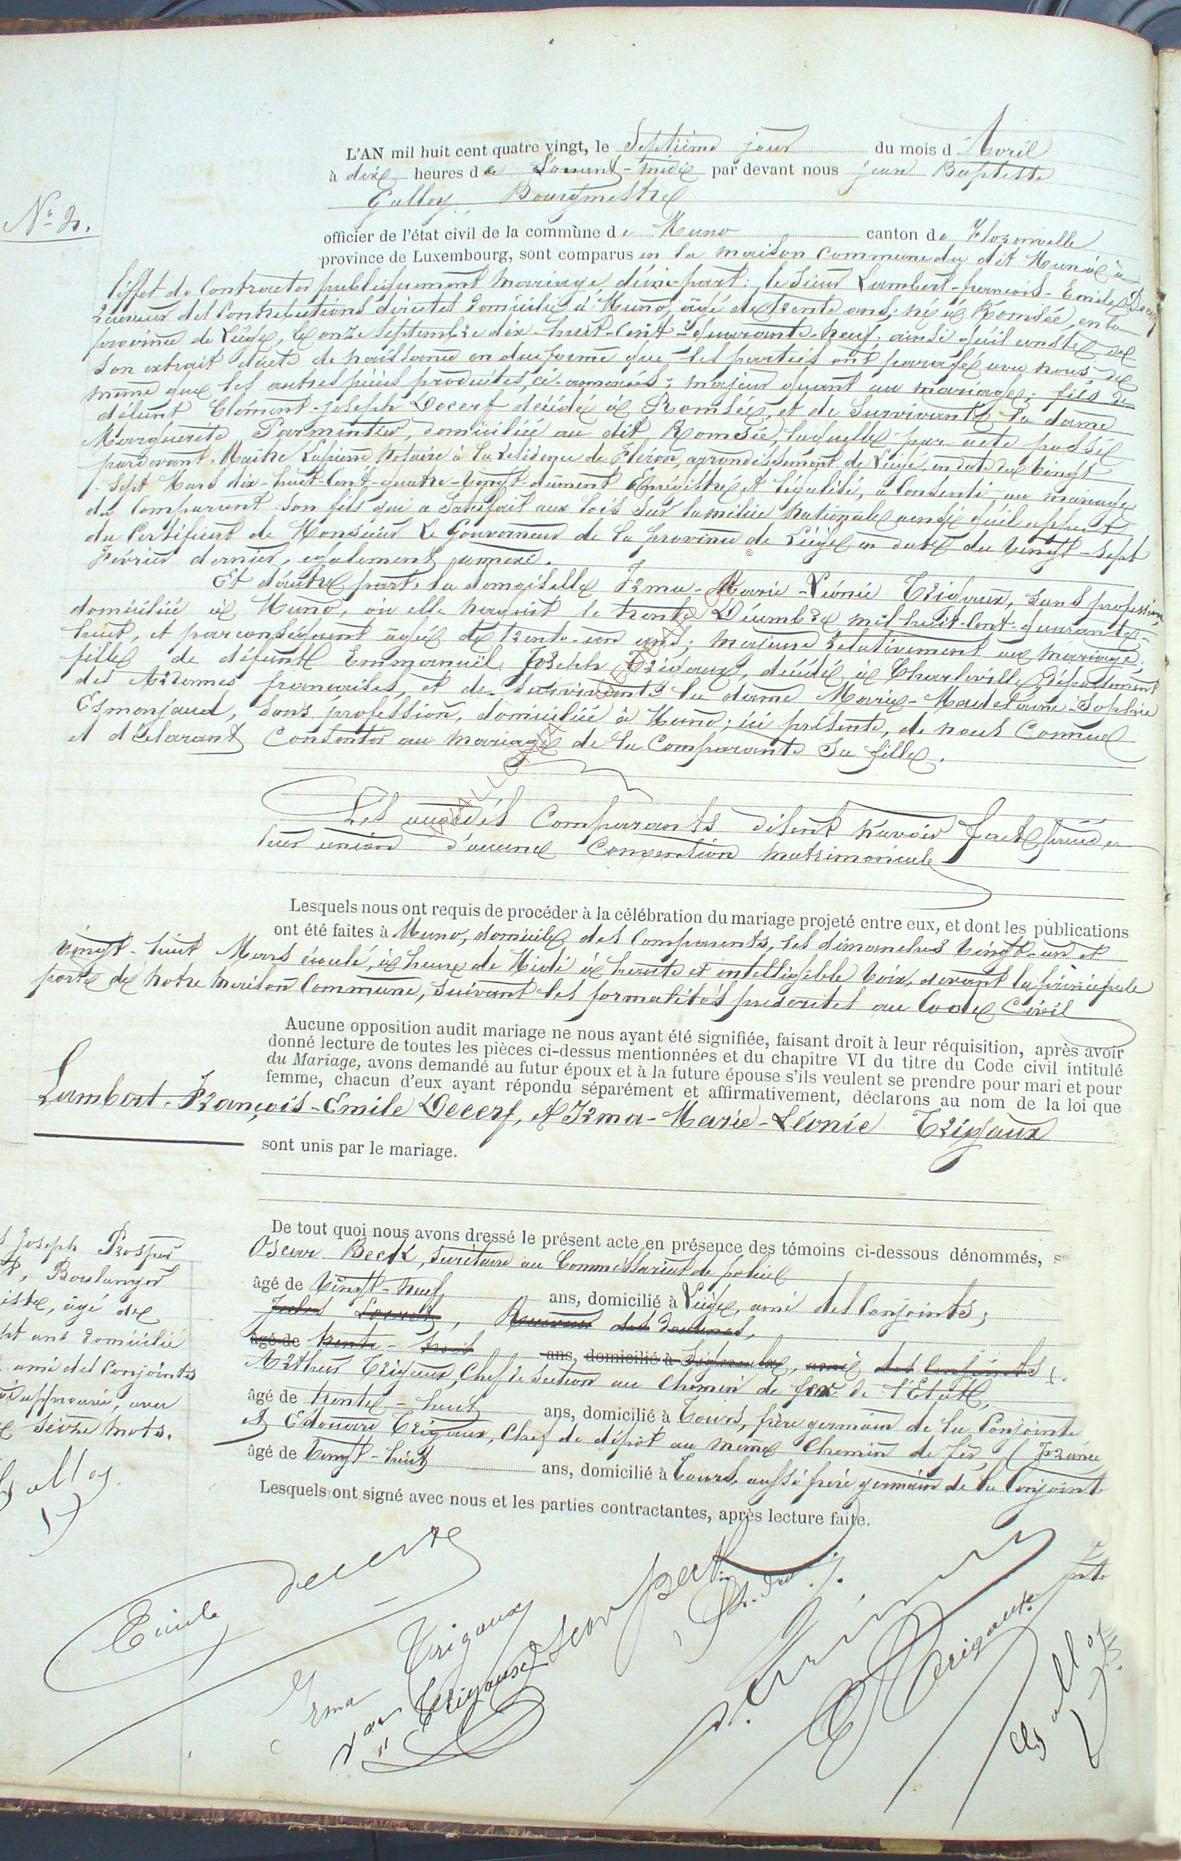 L'AN mil huit cent quatre vingt, le Septième jour du mois d'Avril
à dix heures de avant-midi par devant nous jean Baptiste
Galloy Bourgmestre
N° 2.
officier de l'état civil de la commune de Muno canton de Florenville
province de Luxembourg, sont comparus en la maison commune du dit Muno à
l'effet de contracter publiquement mariage, d'une part: le sieur Lambert-françois-Emile Decerf
receveur des Contributions directes domicilié à Muno, âgé de trente ans, né à Romsée, en la
province de Liège, le onze septembre dix-huit-cent-quarante-neuf; ainsi qu'il conste de
son extrait d'acte de naissance en due forme que les parties ont paraphé avec nous de
même que les autres pièces produites, ci-annexées; majeur quant au mariage; fils de
défunt Clément-joseph Decerf décédé à Romsée, et de survivante la dame
Marguerite Parmentier, domiciliée au dit Romsée, laquelle par acte passé
pardevant Maître Lapierre Notaire à la résidence de Fléron, arrondissement de Liège, en date du vingt
sept Mars dix-huit-cent-quatre-vingt dûment enrégistré et légalisé, a consenti au mariage
du comparant son fils qui a satisfait aux lois sur la milice nationale ainsi qu'il appert
du certificat de Monsieur le Gouverneur de la province de Liège en date du vingt-sept
février dernier, également annexé.
Et d'autre part, la demoiselle Irma-Marie-Léonie Trigaux, sans profession,
domiciliée à Muno, où elle naquit le trente Décembre mil huit-cent-quarante-
huit, et par conséquent âgée de trente-un ans; majeure relativement au mariage,
fille de défunt Emmanuël Joseph Trigaux, décédé à Charleville, département
des Ardennes françaises, et de survivante la dame Marie-Madelaine-Sophie
Esmonjaud, sans profession, domiciliée à Muno; ici présente, de nous connue
et déclarant consentir au mariage de la comparante sa fille.
Les susdits comparants disent n'avoir fait précéder
leur union d'aucune convention matrimoniale
Lesquels nous ont requis de procéder à la célébration du mariage projeté entre eux, et dont les publications
ont été faites à Muno, domicile des comparants, les dimanches vingt-un et
vingt-huit Mars écoulé, à heure de Midi à haute et intelligible voix, devant la principale
porte de notre maison commune, suivant les formalités prescrites au Code Civil
Aucune opposition audit mariage ne nous ayant été signifiée, faisant droit à leur réquisition, après avoir
donné lecture de toutes les pièces ci-dessus mentionnées et du chapitre VI du titre du Code civil intitulé
du Mariage, avons demandé au futur époux et à la future épouse s'ils veulent se prendre pour mari et pour
femme, chacun d'eux ayant répondu séparément et affirmativement, déclarons au nom de la loi que
Lambert-François-Emile Decerf, et Irma-Marie-Léonie Trigaux
sont unis par le mariage.
De tout quoi nous avons dressé le présent acte en présence des témoins ci-dessous dénommés,
Oscar Beck, secrétaire au Commissariat de police
âgé de vingt-neuf ans, domicilié à Liège, ami des Conjoints;
Jules , Receveur des Douanes,
âgé de trente-trois ans, domicilié à ami des Conjoints;
Arthur Trigaux, Chef de section au chemin de fer de l'Etat,
âgé de trente-huit ans, domicilié à Tours, frère germain de la Conjointe
et Edouard Trigaux, Chef de dépôt au même Chemin de fer, (France
âgé de vingt-huit ans, domicilié à Tours, aussi frère germain de la Conjointe
Lesquels ont signé avec nous et les parties contractantes, après lecture faite.
Joseph Prosper
Boulanger
iste, âgé de
ans domicilié
ami des Conjoints
approuvé, avec
seize mots.
Galloy
Emile Decerf
Irma Trigaux
Oscar Beck
Trigaux
E Trigaux
Galloy